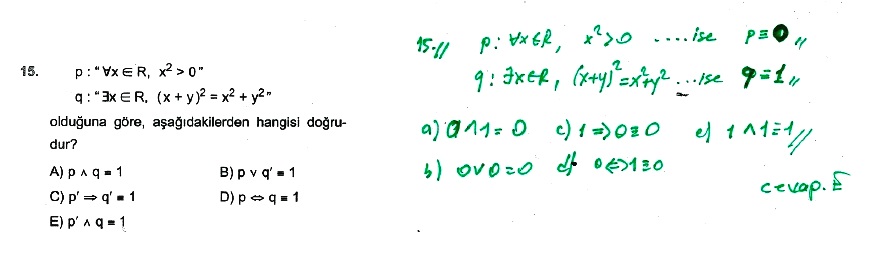 15. p : "∀x ∈ R, x² > 0"
q : "∃x ∈ R, (x + y)² = x² + y²"
olduğuna göre, aşağıdakilerden hangisi doğru-
dur?
A) p ∧ q ≡ 1 B) p ∨ q′ ≡ 1
C) p′ ⇒ q′ ≡ 1 D) p ⇔ q ≡ 1
E) p′ ∧ q ≡ 1
15-// p : ∀x∈R, x²>0 ....ise p≡0 //
q : ∃x∈R, (x+y)²=x²+y² ...ise q≡1 //
a) 0∧1=0 c) 1⇒0≡0 e) 1∧1≡1 //
b) 0∨0=0 d) 0⇔1≡0
cevap. E